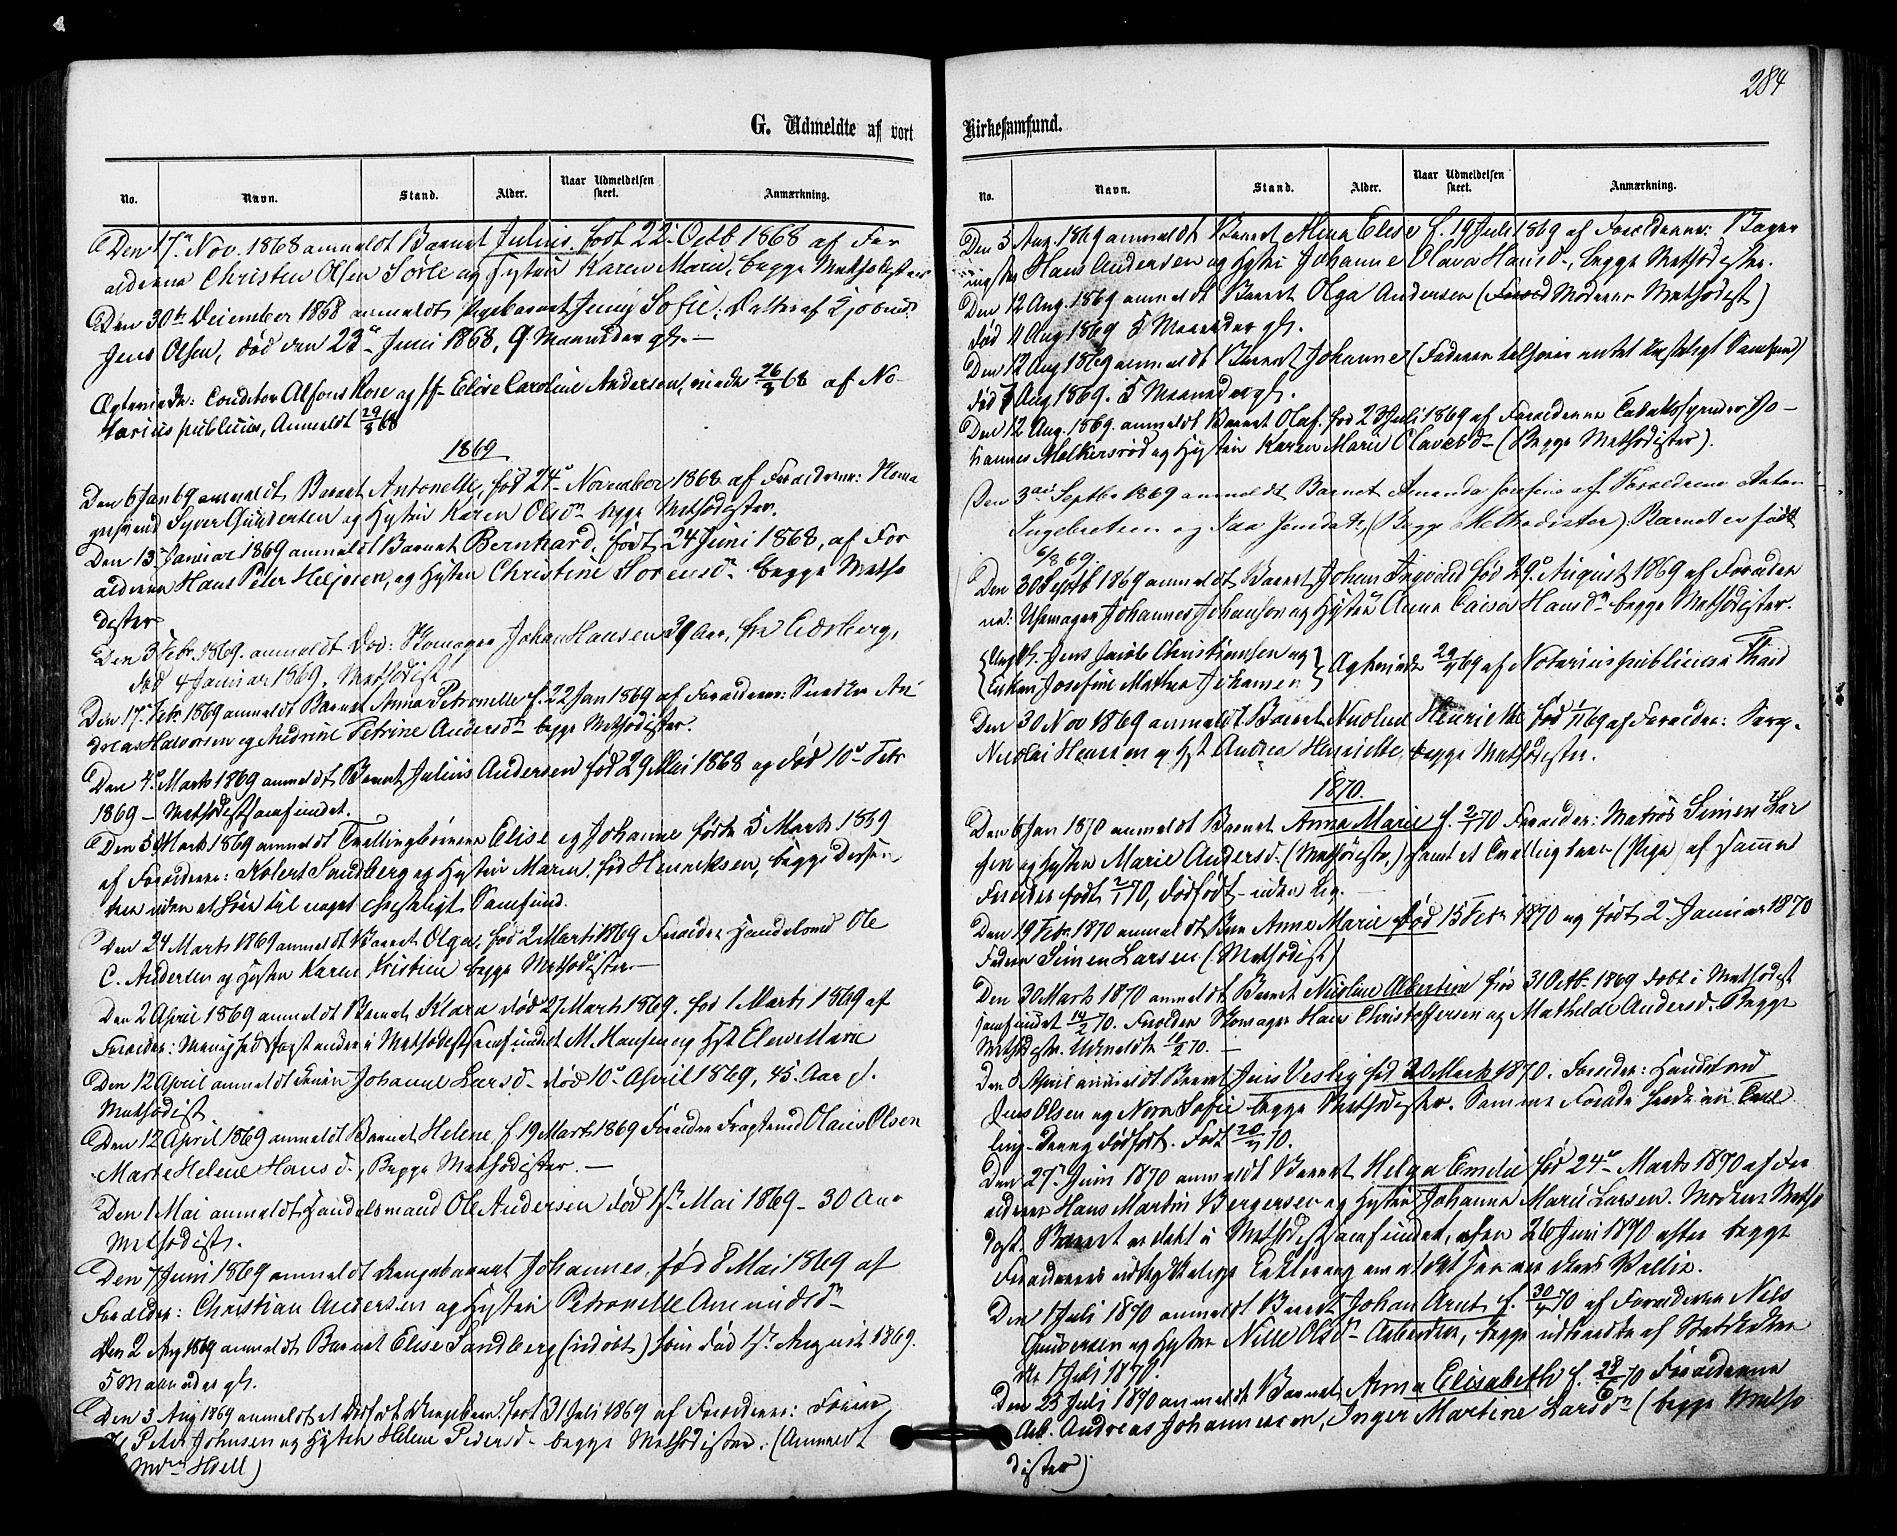 284
G. Udmeldte af vort Kirkesamfund.
No. Navn. Stand. Alder. Naar Udmeldelsen skeet. Anmærkning.
Den 17de Nov. 1868 anmeldt Barnet Julius, født 22 Octb 1868 af For
ældrene Christen Olsen Sørle og Hustru Karen Marie, begge Methodister
Den 30te December 1868 anmeldt Pigebarnet Jenny Sofie, Datter af
Jens Olsen, død den 23de Juni 1868, 9 Maaneder gl. —
Ægteviede: Conditor Alfons Rose og Elise Caroline Andersen, viede 26/3 68 af No-
tarius publicus, Anmeldt 29/3 68
1869
Den 6 Jan 69 anmeldt Barnet Antonette, fød 24de November 1868 af Forældrene:
Syver Gundersen og Hustru Karen Olsdn begge Methodister.
Den 13de Januar 1869 anmeldt Barnet Bernhard, født 24 Juni 1868, af For
ældrene Hans Peter og Hustru Christine Sørensdn begge Metho
dister
Den 3 Febr. 1869. anmeldt død: Skomager Johan Hansen 39 Aar, fra Eidsberg,
død 4 Januar 1869. Methodist
Den 17de Febr 1869 anmeldt Barnet Anna Petronelle f. 22 Jan 1869 af Forældrene: Snedker An
dreas Halvorsen og Andrine Petrine Andersdn begge Methodister.
Den 4de Marts 1869 anmeldt Barnet Julius Andersen fød 29 Mai 1868 og død 10de Febr
1869 – Methodistsamfundet.
Den 5 Marts 1869 anmeldt Tvillingbørnene Elise og Johanne fødte 5 Marts 1869
af Forældrene: Robert Sandberg og Hustru Maren, fød Henriksen, begge Dissen
tere uden at høre til noget christeligt Samfund.
Den 24 Marts 1869 anmeldt Barnet Olga, fød 2 Marts 1869 Forældre Handelsmd Ole
C. Andersen og Hustru Karen Kristine begge Methodister —
Den 2 April 1869 anmeldt Barnet Klara død 27 Marts 1869. fød 1 Marts 1869 af
Forældre: Menighedsforstander i Methodistsamfundet M. Hansen og Hst Elen Marie
Den 12 April anmeldt Johanne Larsd. død 10de April 1869, 45 Aar gl.
Methodist
Den 12 April 1869 anmeldt Barnet Helene f 19 Marts 1869 Forældre Fragtmd Olaus Olsen
Marte Helene Hansd., Begge Methodister. —
Den 1 Mai anmeldt Handelsmand Ole Andersen død 1ste Mai 1869 – 30 Aar
Methodist.
Den 7 Juni 1869 anmeldt Drengebarnet Johannes, fød 8 Mai 1869 af
Forældre: Christian Andersen og Hustru Petronelle Amundsdn
Den 2 Aug 1869 anmeldt Barnet Elise Sandberg (udøbt) som død 1ste August 1869.
5 Maaneder gl.
Den 3 Aug 1869 anmeldt et dødfødt Drengebarn, født 31 Juli 1869 af Forældrene:
Peter Johnsen og Hustru Helene Pedersd – begge Methodister. (Anmeldt
Hvell)
Den 5 Aug. 1869 anmeldt Barnet Mina Elise f. 19 Juli 1869 af Forældrene: Bager
Hans Andersen og Hustru Johanne Olava Hansd., begge Methodister.
Den 12 Aug. 1869 anmeldt Barnet Olga Andersen (Moderen Methodist)
død 11 Aug 1869 5 Maaneder gl.
Den 12 Aug 1869 anmeldt Barnet Johanne (Faderen tilhører intet christeligt Samfund)
død 7 Aug 1869. 5 Maaneder gl.
Den 12 Aug. 1869. anmeldt Barnet Olaf. fød 23 Juli 1869 af Forældrene Tobaksspinder Jo-
hannes Melkersrød og Hustru Karen Marie Olavesd – (Begge Methodister).
Den 3die Septbr 1869 anmeldt Barnet Amanda Josefine af Forældrene Anton
Ingebretsen og (Begge Methodister) Barnet er født
6/8 69.
Den 30 Septb 1869 anmeldt Barnet Johan Ingvald fød 29de August 1869 af Forældre
ne: Uhrmager Johannes Johansen og Hustru Anne Caisa Hansdn begge Methodister.
Ungk. Jens Jacob Christiansen og
Enken Josefine Mathea Johansen } Ægteviede 29/ 69 af Notarius publicus i Thrst
Den 30 Nov 1869 anmeldt Barnet Nicoline Henriette fød 1/11 69 af Forældr:
Nicolai Hansen og Hst Andrea Henriette, begge Methodister.
1870.
Den 6 Jan 1870 anmeldt Barnet Anna Marie f. 2/1 70 Forældre: Matros Simen Lar
sen og Hustru Marie Andersd. (Methodister,) samt et Tvillingbarn (Pige) af samme
Forældre født 2/1 70, dødfødt – uden Lig.
Den 19 Febr. 1870 anmeldt Barnet Anne Marie død 15 Febr. 1870 og født 2 Januar 1870
Faderen Simen Larsen (Methodist)
Den 30 Marts 1870 anmeldt Barnet Nicoline Albertine fød 31 Octb. 1869 døbt i Methodist
samfundet 14/2 70. Forældre Skomager Hans Christoffersen og Mathilde Andersd. Begge
Methodister. Udmeldte 10/2 70. —
Den 8 April anmeldt Barnet Jens Vesley fød 20 Marts 1870. Forældre: Handelsmd
Jens Olsen og Nora Sofie begge Methodister. Samme Forældre havde en Tvil
ling-Dreng dødfødt. Født 20/3 70.
Den 27de Juni 1870 anmeldt Barnet Helga Emelie fød 24de Marts 1870 af For
ældrene Hans Martin Bergersen og Hustru Johanne Marie Larsen. Moderen Metho
dist. Barnet er døbt i Methodistsamfundet, den 26 Juni 1870 efter begge
Forældrenes udtrykkelige Erklæring om at det saa er deres Villie.
Den 1 Juli 1870 anmeldt Barnet Johan Arnt f. 30/4 70 af Forældrene Nils
Gundersen og Hustru Nille Olsdn begge udtraadte af Statskirken
1 Juli 1870.
Den 25 Juli 1870 anmeldt Barnet Anna Elisabeth f. 28/6 70 Forældrene
Arb. Andreas Johannesen, Inger Martine Larsdn (begge Metho
dister)